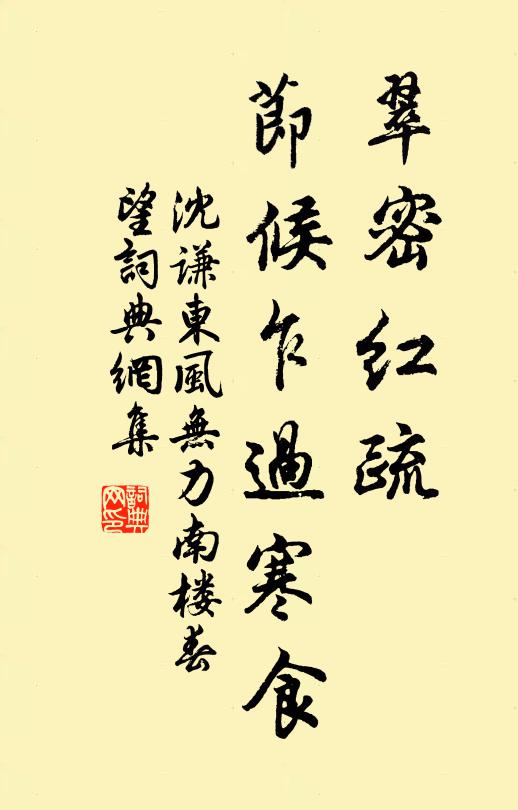 翠密红疏
節候乍過寒食
沈謙東風無力南楼春
望詞典網集
詞典
网印